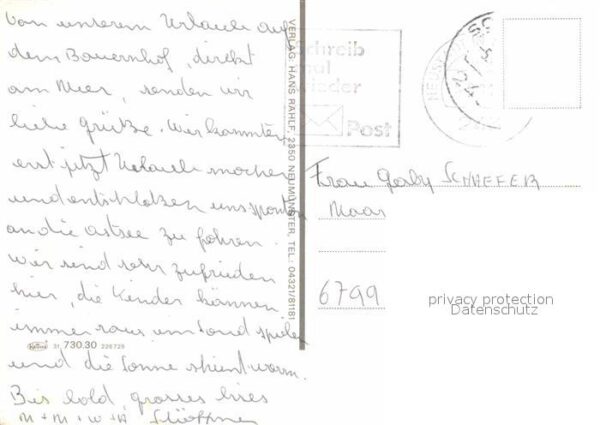 Von unserem Urlaub auf
dem Bauernhof, direkt
am Meer, senden wir
liebe Grüße. Wir konnten
erst jetzt Urlaub machen
und entschloßen uns spontan
an die Ostsee zu fahren.
Wir sind sehr zufrieden
hier, die Kinder können
immer raus im Sand spielen
und die Sonne shient warm.
Bis bald, grosses
M + M + W + H
VERLAG: HANS RAHLF, 2350 NEUMÜNSTER, TEL.: 04321/81181
31 730.30 226729
Schreib
mal
wieder
Post
Frau Gaby SCHAEFER
Maar
6799
privacy protection
Datenschutz